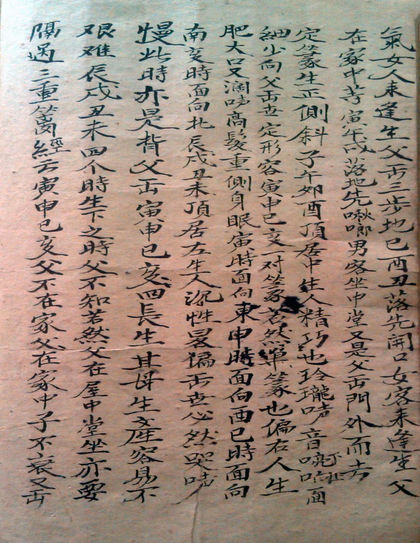 氣女人来逢生父去三步地巳酉丑落先開口女客来逢生父
在家中等寅午戌落地先啾唧男客坐中堂又是父去門外而去
定篆生正側斜子午卯酉頂居中生人精巧也玲瓏啼音喨喨面
細少向父去查定形容寅申巳亥对篆若然單篆也偏右人生
肥大口又濶啼高髮重側身眠寅時面向東申時面向西巳時面向
南亥時面向北辰戌丑未頂居左生人沉性晏偏去查必然哭啼
慢此時亦是背父去寅申巳亥四長生其母生産容易不
艰难辰戌丑未四个時生下之時父不知若然父在屋中堂坐亦要
隔过三重篱經云寅申巳亥父不在家父在家中子不衰又去